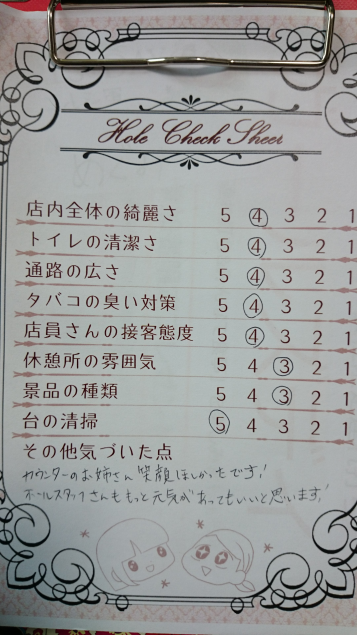 Hole Check Sheer
店内全体の綺麗さ 5 4 3 2 1
トイレの清潔さ 5 4 3 2 1
通路の広さ 5 4 3 2 1
タバコの臭い対策 5 4 3 2 1
店員さんの接客態度 5 4 3 2 1
休憩所の雰囲気 5 4 3 2 1
景品の種類 5 4 3 2 1
台の清掃 5 4 3 2 1
その他気づいた点
カウンターのお姉さん笑顔ほしかったです!
ホールスタッフさんももっと元気があってもいいと思います!